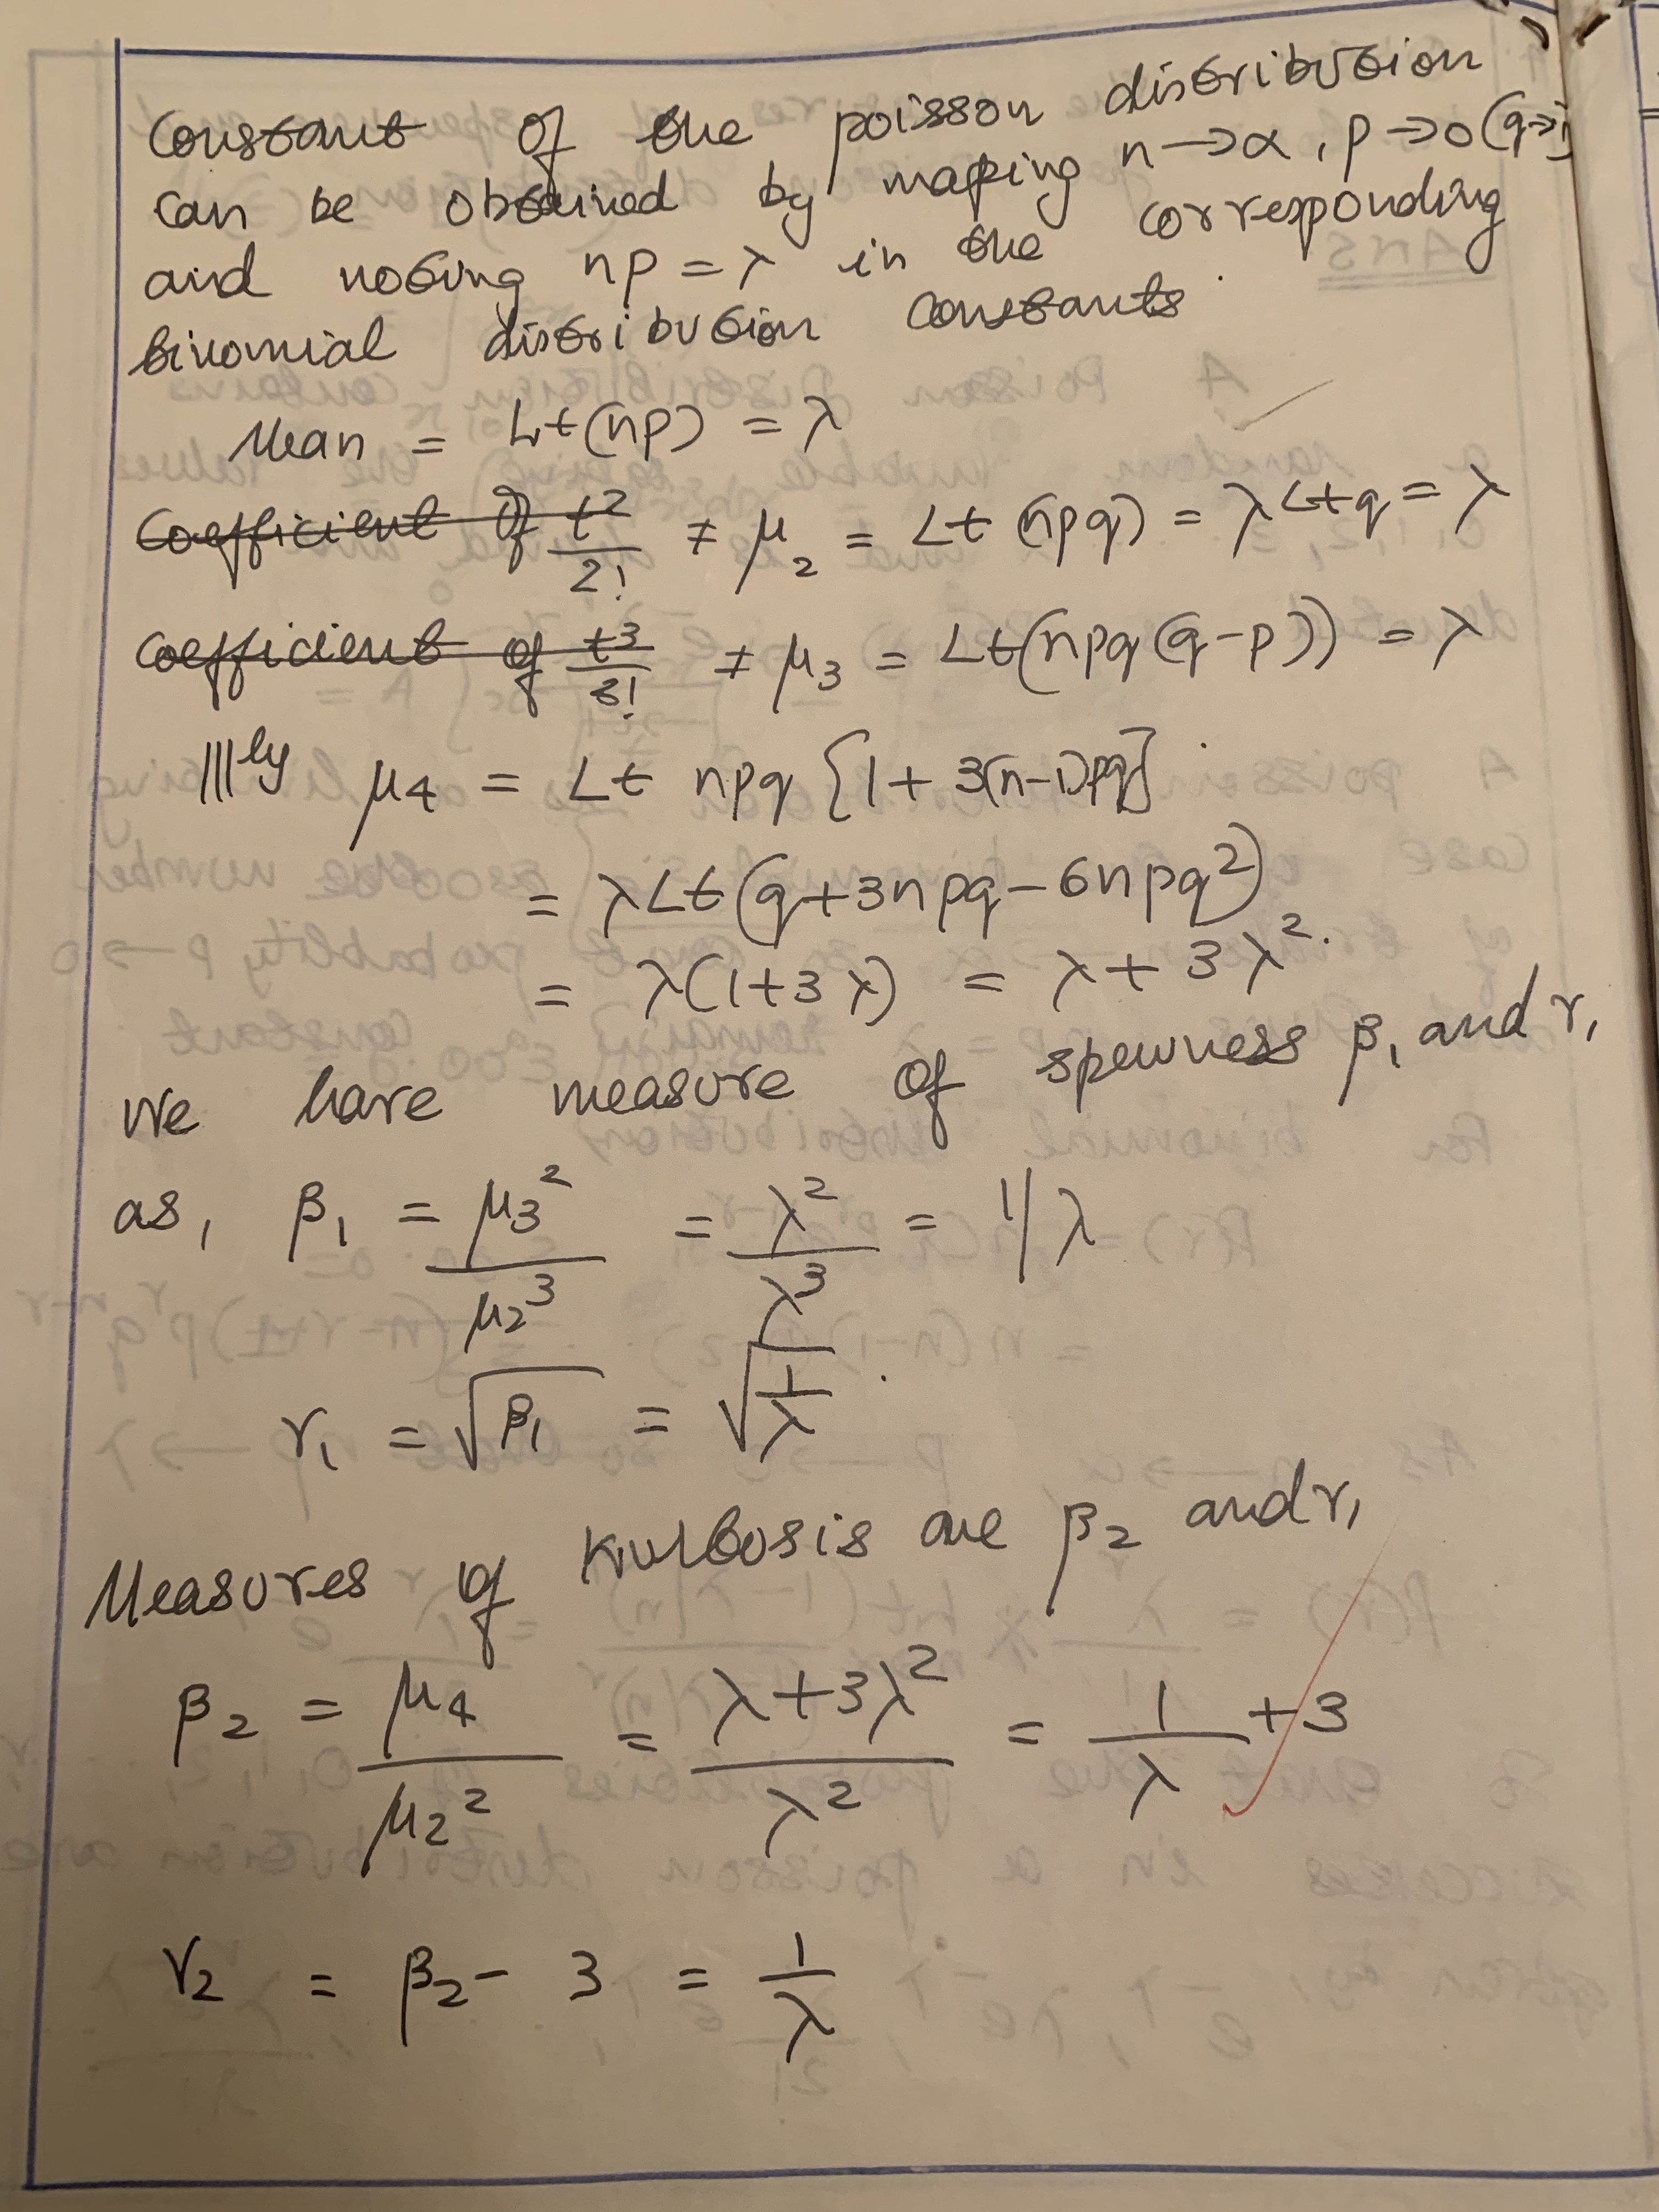 Constant of the poisson distribution
can be obtained by making n→α, p→0 (q→1)
and noting np = λ in the corresponding
binomial distribution constants.
Mean = Lt(np) = λ
Coefficient of t²/2! = μ₂ = Lt (npq) = λ Lt q = λ
Coefficient of t³/3! = μ₃ = Lt(npq(q-p)) = λ
|||ly μ₄ = Lt npq {1 + 3(n-1)pq]
= λLt(q+3npq-6npq²)
= λ(1+3λ) = λ + 3λ².
We have measure of spewness β₁ and γ₁
as, β₁ = μ₃²/μ₂³ = λ²/λ³ = 1/λ
γ₁ = √β₁ = √1/λ.
Measures of Kurtosis are β₂ and γ₁
β₂ = μ₄/μ₂² = λ+3λ²/λ² = 1/λ + 3
γ₂ = β₂ - 3 = 1/λ